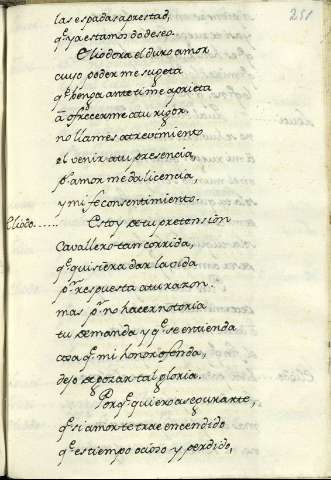 251
las espadas aprestad,
q̃ ya estamos do deseo.
Eliodora el duro amor
cuio poder me sugeta
q̃ benga ante ti me aprieta
a ofrecerme a tu rigor.
no llames atrevimiento
el venir a tu presencia,
p̃ amor me da licencia,
y mi fe consentimiento.
Eliodo...... Estoy de tu pretension
Cavallero tan corrida,
q̃ quisiera dar la vida
p̃ respuesta a tu razon.
mas p̃ no hacer notoria
tu demanda y q̃ se entienda
cosa q̃ mi honor ofenda,
dejo de gozar tal gloria.
Porq̃ quiero asegurarte,
q̃ si amor te trae encendido
q̃ es tiempo ocioso y perdido,